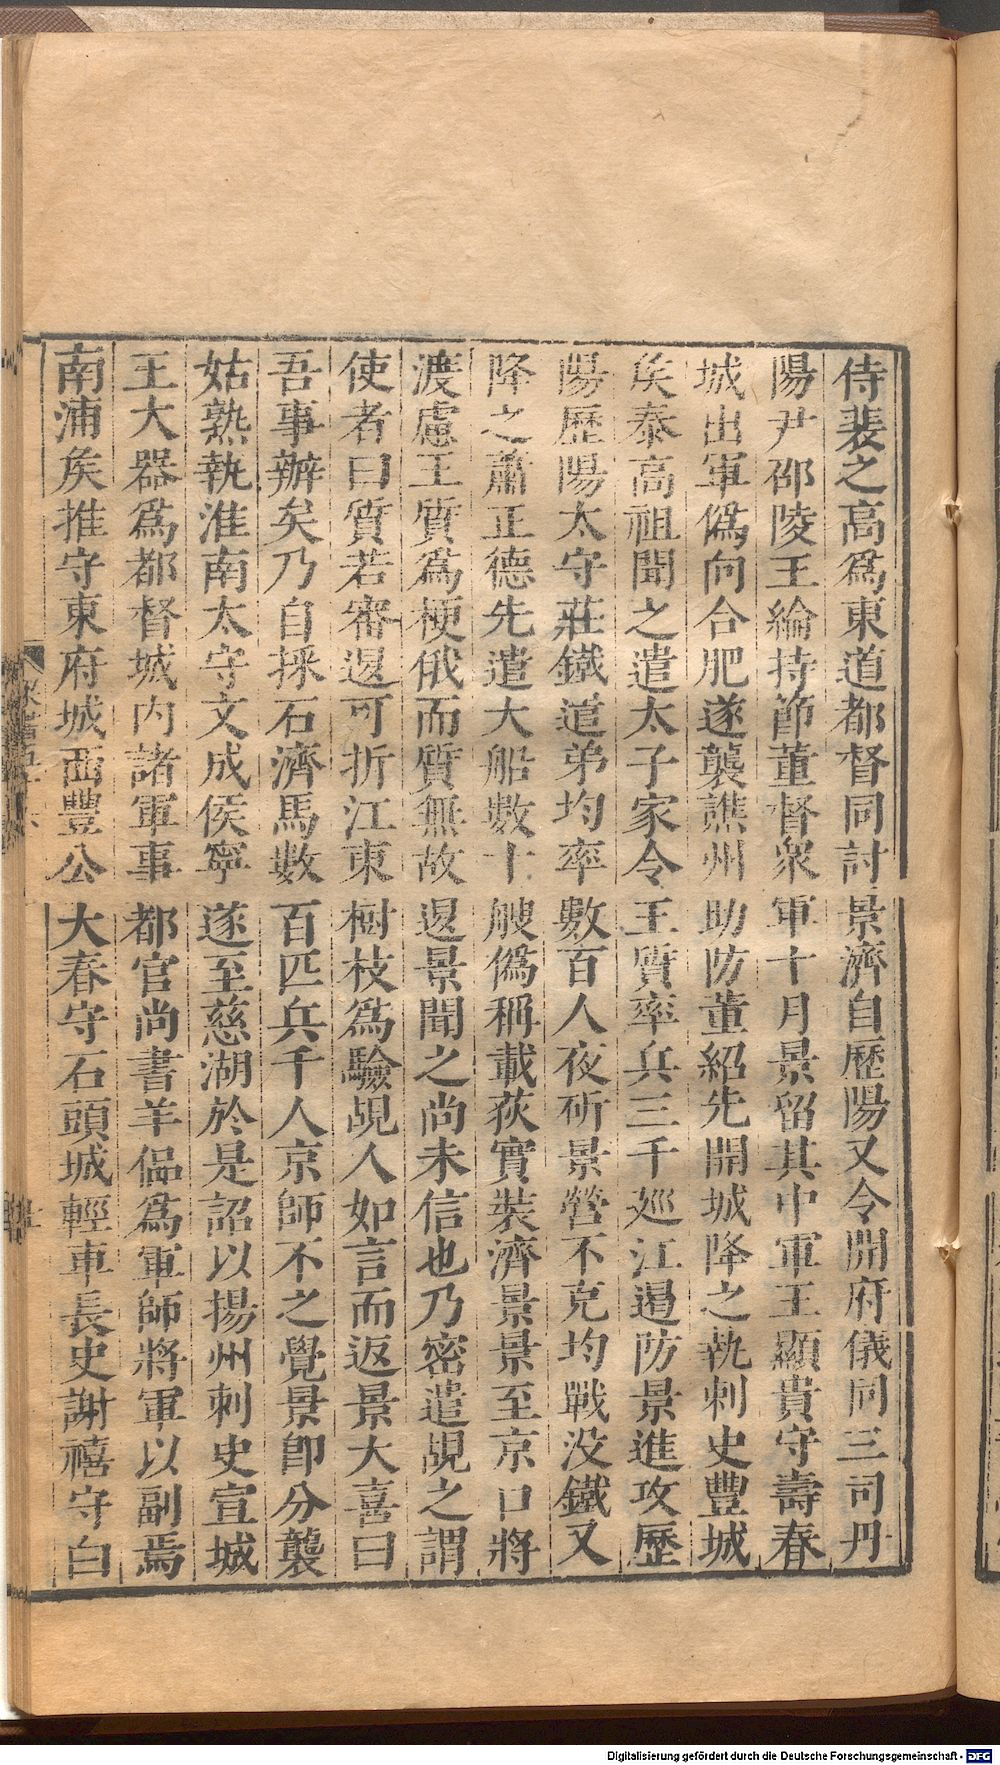 侍裴之高爲東道都督同討景濟自歷陽又令開府儀同三司丹
陽尹邵陵王綸持節董督衆軍十月景留其中軍王顯貴守壽春
城出軍僞向合肥遂襲譙州助防董紹先開城降之執刺史豐城
矦泰高祖聞之遣太子家令王質率兵三千廵江遏防景進攻歷
陽歷陽太守莊鐵遣弟均率數百人夜斫景營不克均戰没鐵又
降之蕭正德先遣大船數十艘僞稱載荻實裝濟景景至京口將
渡慮王質爲梗俄而質無故退景聞之尚未信也乃密遣覘之謂
使者曰質若審退可折江東樹枝爲驗覘人如言而返景大喜曰
吾事辦矣乃自採石濟馬數百匹兵千人京師不之覺景卽分襲
姑熟執淮南太守文成侯寧遂至慈湖於是詔以揚州刺史宣城
王大器爲都督城内諸軍事都官尚書羊侃爲軍師將軍以副焉
南浦矦推守東府城西豐公大春守石頭城輕車長史謝禧守白
Digitalisierung gefördert durch die Deutsche Forschungsgemeinschaft - DFG